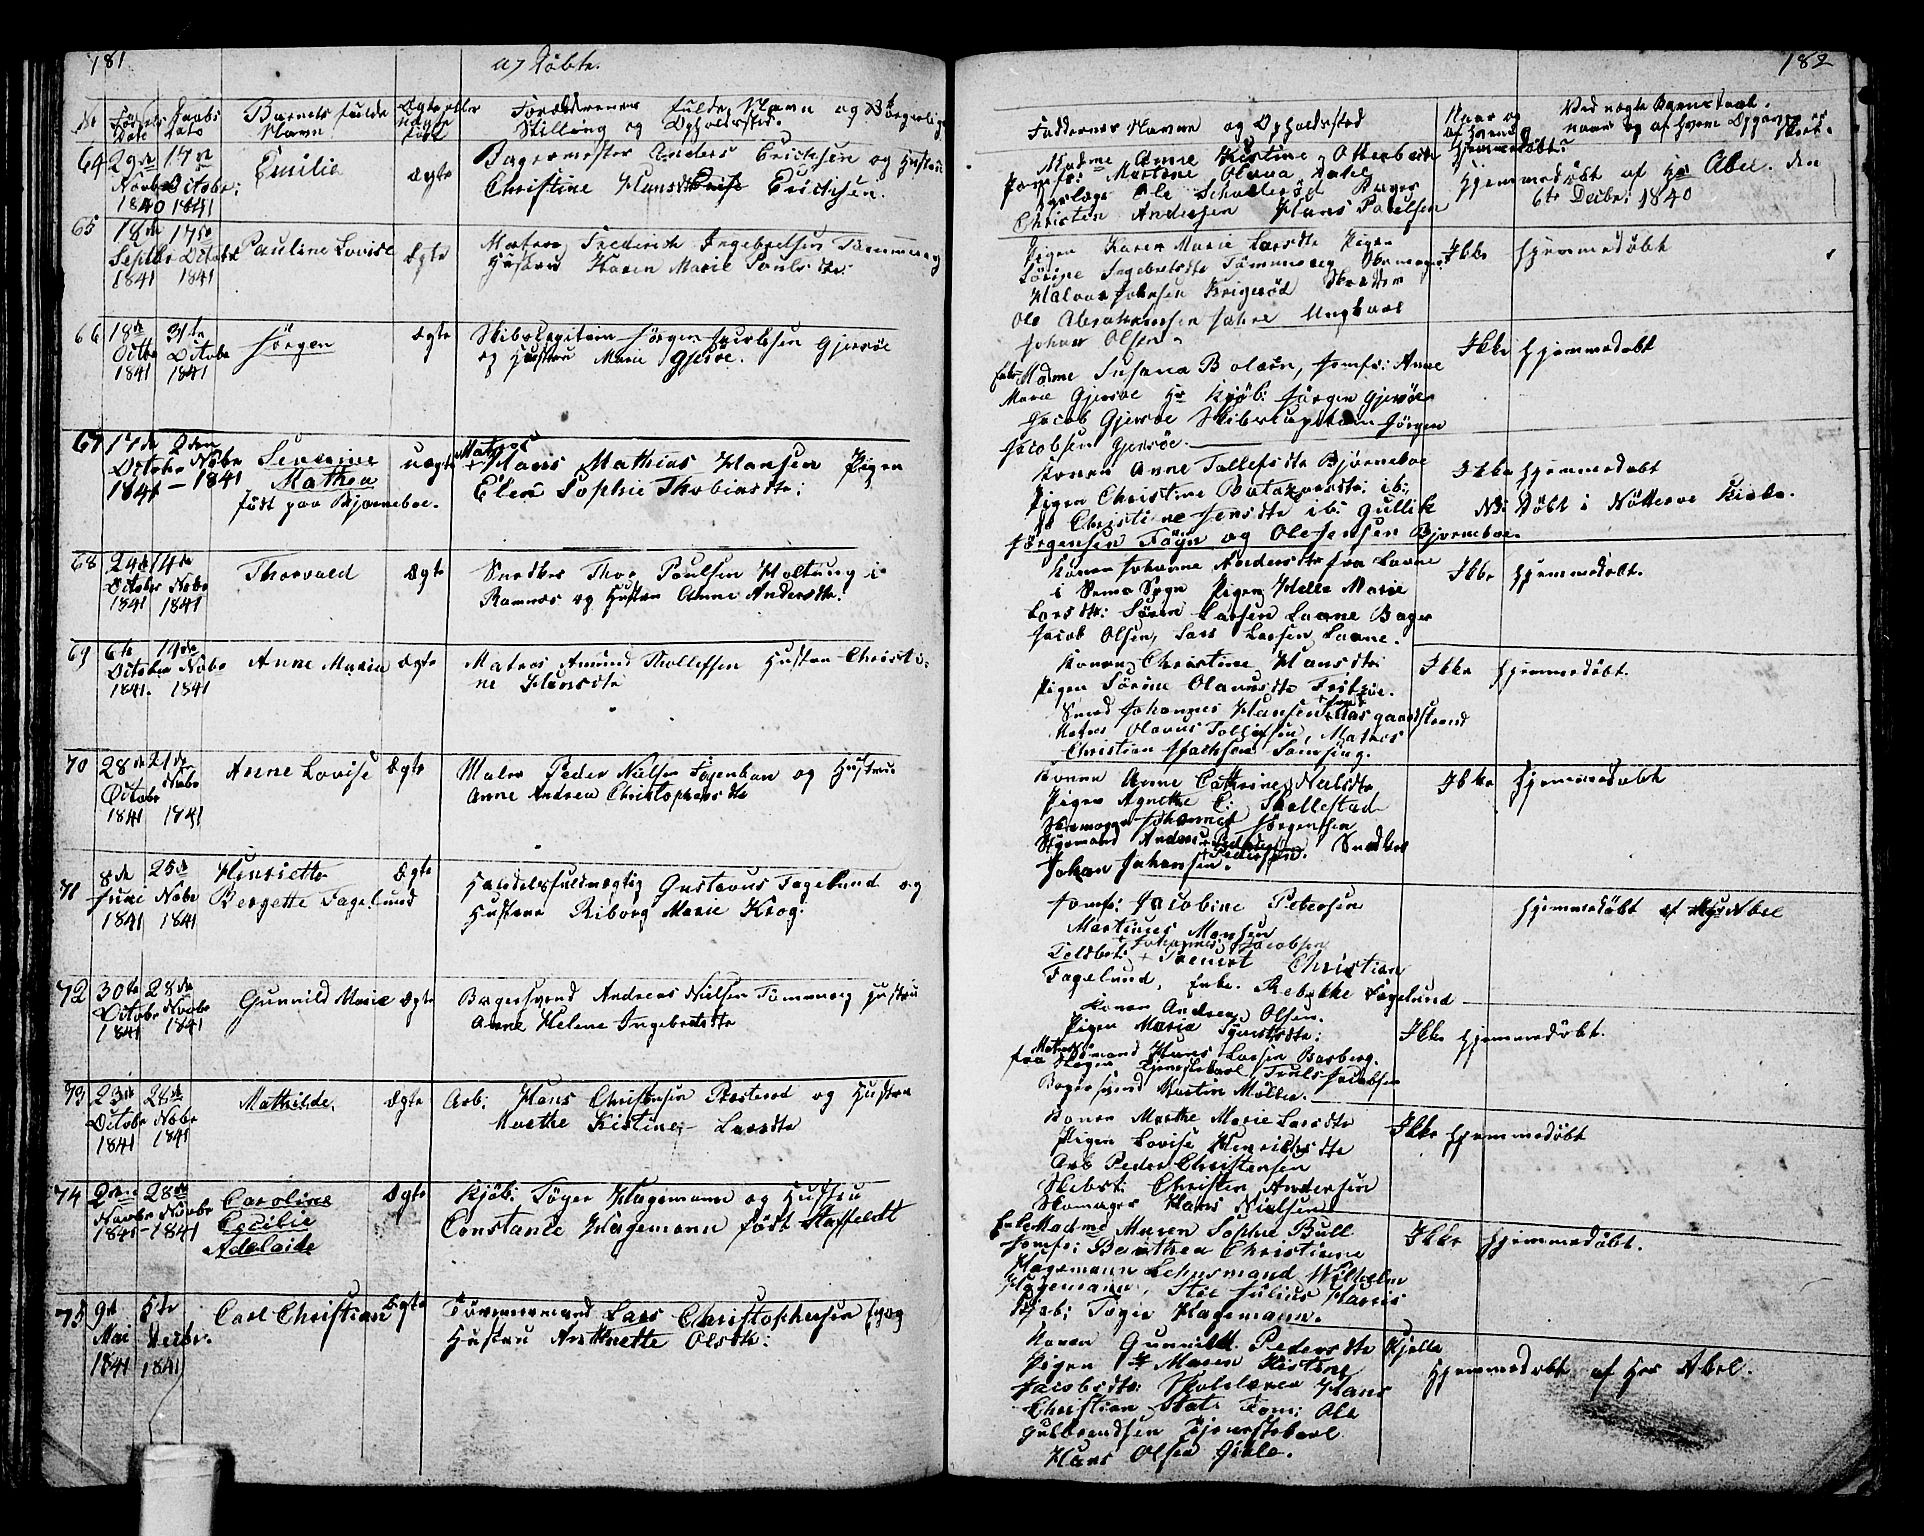 181
af Döbte.
No
Födsels Date
Daabs Dato
Barnets fulde Navn
Ægte eller Uægte Född
Forældrenes fulde Navn og Borgerlige
Stilling og Opholdssted.
64
29de Novbr 1840
17de Octobr: 1841
Emilie
Ægte
Bagermester Anders Erichsen og Hustru
Christine Hansdtr Erichsen.
65
18de Septbr 1841
17de Octobr 1841
Pauline Lovise
Ægte
Matros Frederik Ingebretsen Tömmerog
Hustru Karen Marie Paulsdtr:
66
18de Octbr 1841
31te Octobr 1841
Jörgen
Ægte
Skibscapitain Jörgen Jacobsen Gjersöe
og Hustru Marie Gjersöe.
67
17de October 1841
2den Novbr 1841
Severine
Mathea
född paa Bjørneboe.
uægte
Matros
Hans Mathias Hansen Pigen
Elen Sophie Thobiasdtr:
68
24de October 1841
14de Novbr 1841
Thorvald
Ægte
Snedker Thor Poulsen Holtung i
Ramnæs og Hustru Anne Andersdtr:
69
6te October 1841.
14de Novbr 1841
Anne Maria
Ægte
Matros Amund Thollefsen Hustru Christi-
ne Hansdtr
70
28de October 1841
21de Novbr 1841
Anne Lovise
Ægte
Maler Peder Nielsen og Hustru
Anne Andrea Christophersdtr
71
8de Juni 1841
25de Novbr 1841
Henriette
Bergette Fagelund
Ægte
Handelsfuldmægtig Gustavus Fagelund og
Hustru Riborg Marie Krog.
72
30te October 1841
28de Novbr 1841
Gunnild Marie
Ægte
Bagersvend Andreas Nielsen Tömmerog Hustru
Anne Helene Ingebretsdtr
73
23de October 1841
28de Novbr 1841
Mathilde.
Ægte
Arb: Hans Christensen og Hustru
Marthe Kistine Larsdtr
74
2den Novbr 1841
28de Novbr 1841
Caroline
Cecilie
Adelaide
Ægte
Kjöb: Töger Hagemann og Hustru
Constance Hagemann född Staffeldt
75
9de Mai 1841
5te Decbr. 1841
Carl Christian
Ægte
Lars Christophersen og
Hustru Olsdtr:
182
Faddernes Navne og Opholdssted
Naar og af hvem Hjemmedöbt?
Ved uægte Barns Daab.
naar og af hvem Opgaven er skeet.
Madme Anne Kistine Otterbech
Jomfr: Martine Olava Dahl
Ole Bager
Christen Andersen Hans Paulsen
Hjemmedöbt af Hr Abel. den
6te Decbr: 1840
Pigen Karen Marie Larsdtr Pigen
Sörine Ingebretsdtr Tömmerog Skomager
Halvor Johnsen Skrædder
Ole Abrahamsen Ungkarl
Johan Olsen
Ikke hjemmedöbt
Enke Madme Susana Bolærn, Jomfr: Anne
Marie Gjersöe Hr Kjöb: Jörgen Gjersöe
Jacob Gjersöe Skibscapitain Jörgen
Jacobsen Gjersöe.
Ikke hjemmedöbt
Konen Anne Tollefsdtr Bjørneboe
Pigen Christine ib:
do Christine Jensdtr ib: Gullik
Jörgensen Föyn og Ole Jensen Bjørneboe.
Ikke hjemmedöbt
NB: Döbt i Nötteröe Kirke.
Konen Johanne Andersdtr fra Lavne
i Sems Sogn Pigen Helle Marie
Larsdtr: Sören Larsen Laane Bager
Jacob Olsen, Lars Larsen Laane.
Ikke hjemmedöbt.
Konen Christine Hansdtr
Pigen Sörine Olavusdtr
Smed Johannes Hansen Aasgaardstrand
Matros Olavus Tollefsen, Matros
Christian
Ikke hjemmedöbt.
Konen Anne Cathrine Nielsdtr
Pigen Agnethe C: Skellestad
Skomager Johannes Jörgensen
Styrmand Andreas Pedersen. Snedker
Johan Johansen.
Ikke hjemmedöbt
Jomfr: Jacobine Petersen
Martinus Monsen
Toldbet: Johannes Jacobsen
Christian
Fagelund, Enke. Rebekke Fagelund
hjemmedöbt af Hr Abel
Konen Andrea Olsen.
Pigen Marie
Matros Hans Larsen Basberg.
Tjenestekarl Truls Jacobsen
Bagersvend Martin Möller.
Ikke hjemmedöbt.
Konen Marthe Marie Larsdtr
Pigen Lovise Henrichsdtr
Arb Peder Christensen
Skibst: Christen Andersen
Skomager Hans Nielsen
Ikke hjemmedöbt
Enke Madme Maren Sophie Bull
Jomfr: Barthea Christiane
Hagemann Lehnsmand Wilhelm
Hagemann, Julius Harris
Kjöb: Töger Hagemann.
Ikke hjemmedöbt.
Konen Gunnild Pedersdtr Kjelle
Pigen Maren Kistine
Jacobsdtr: Skolelærer Hans
Christian Ole
Gulbrandsen Tjenestekarl
Hans Olsen
Hjemmedöbt af Hr Abel.